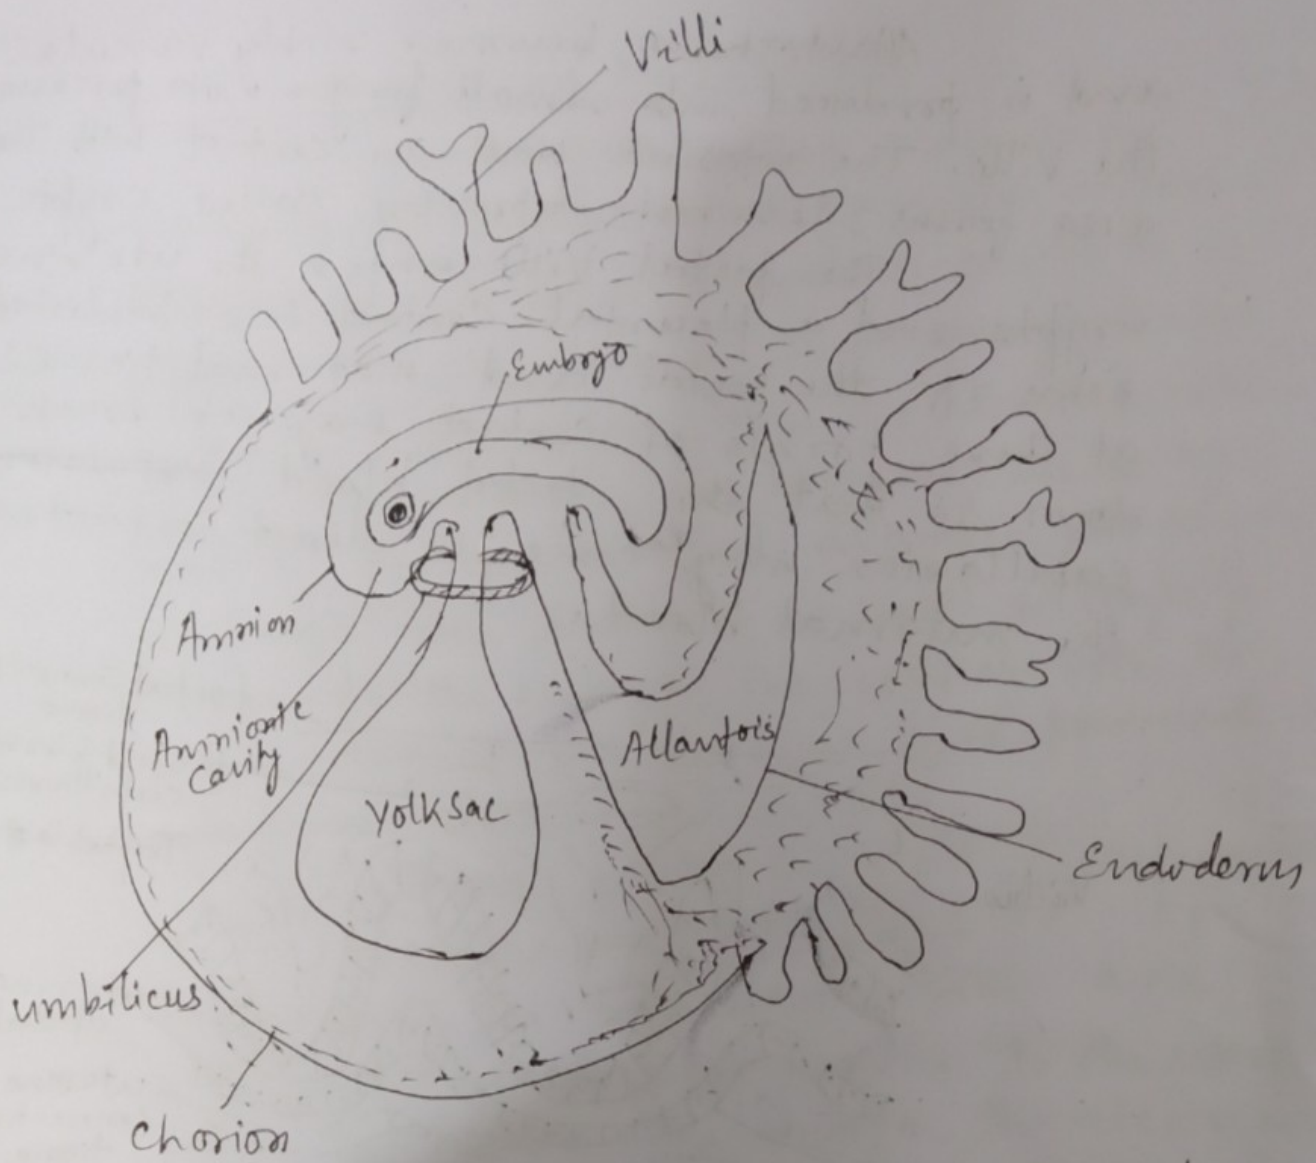 Villi
Embryo
Amnion
Amniotic
Cavity
Yolk Sac
Allantois
Endoderm
umbilicus
Chorion